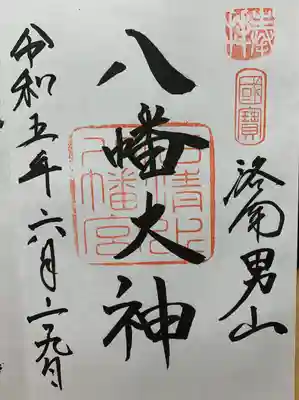 奉拝
國寶
洛南男山
八幡大神
石清水
八幡宮
令和五年六月二九日